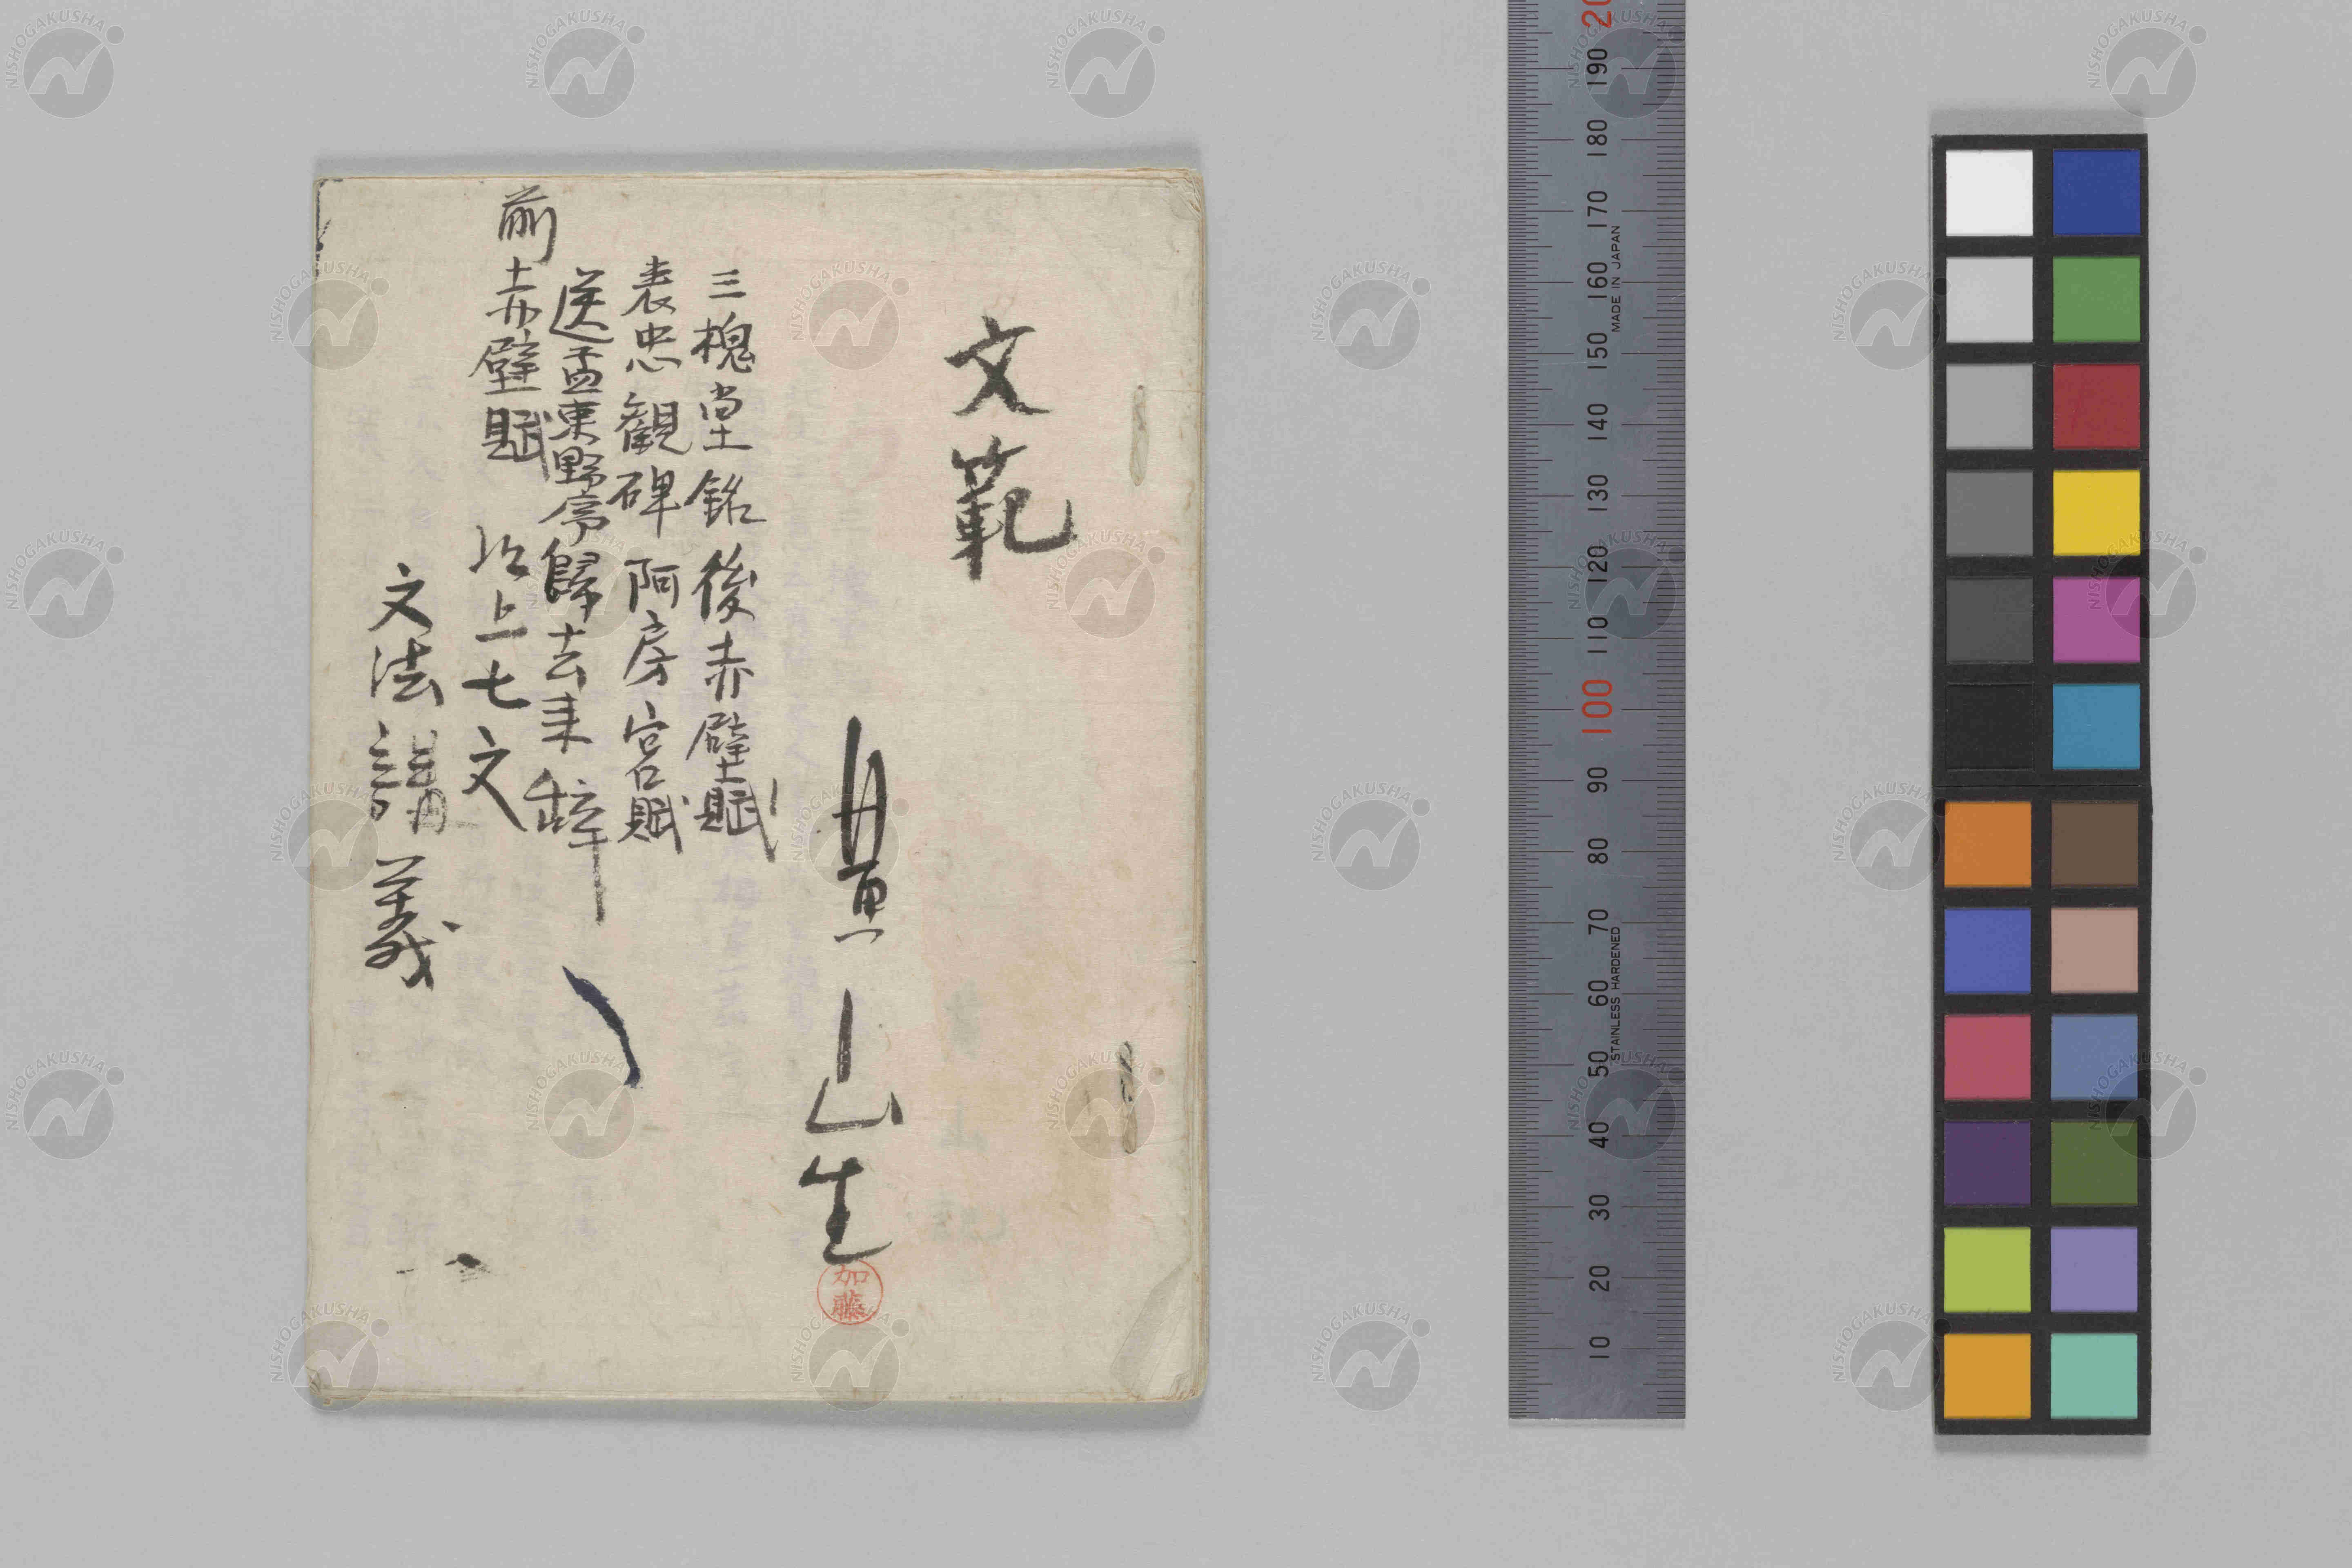 文範
山生
加藤
三槐堂銘 後赤壁賦
表忠観碑 阿房宮賦
送孟東野序 歸去来辭
前赤壁賦 以上七文
文法講義
200
190
180
170
160
150
140
130
120
110
100
90
80
70
60
50
40
30
20
10
MADE IN JAPAN
STAINLESS HARDENED
NISHOGAKUSHA